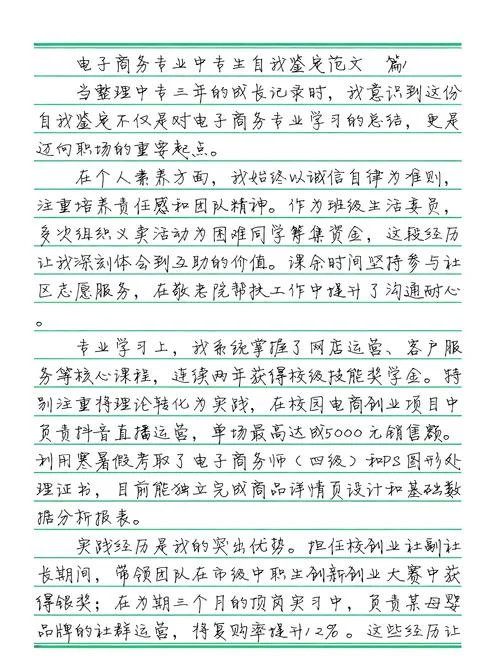 电子商务专业中专生自我鉴定范文 篇1
当整理中专三年的成长记录时，我意识到这份
自我鉴定不仅是对电子商务专业学习的总结，更是
迈向职场的重要起点。
在个人素养方面，我始终以诚信自律为准则，
注重培养责任感和团队精神。作为班级生活委员，
多次组织义卖活动为困难同学筹集资金，这段经历
让我深刻体会到互助的价值。课余时间坚持参与社
区志愿服务，在敬老院帮扶工作中提升了沟通耐心
。
专业学习上，我系统掌握了网店运营、客户服
务等核心课程，连续两年获得校级技能奖学金。特
别注重将理论转化为实践，在校园电商创业项目中
负责抖音直播运营，单场最高达成5000元销售额。
利用寒暑假考取了电子商务师（四级）和PS图形处
理证书，目前能独立完成商品详情页设计和基础数
据分析报表。
实践经历是我的突出优势。担任校创业社副社
长期间，带领团队在市级中职生创新创业大赛中获
得银奖；在为期三个月的顶岗实习中，负责某母婴
品牌的社群运营，将复购率提升12%。这些经历让